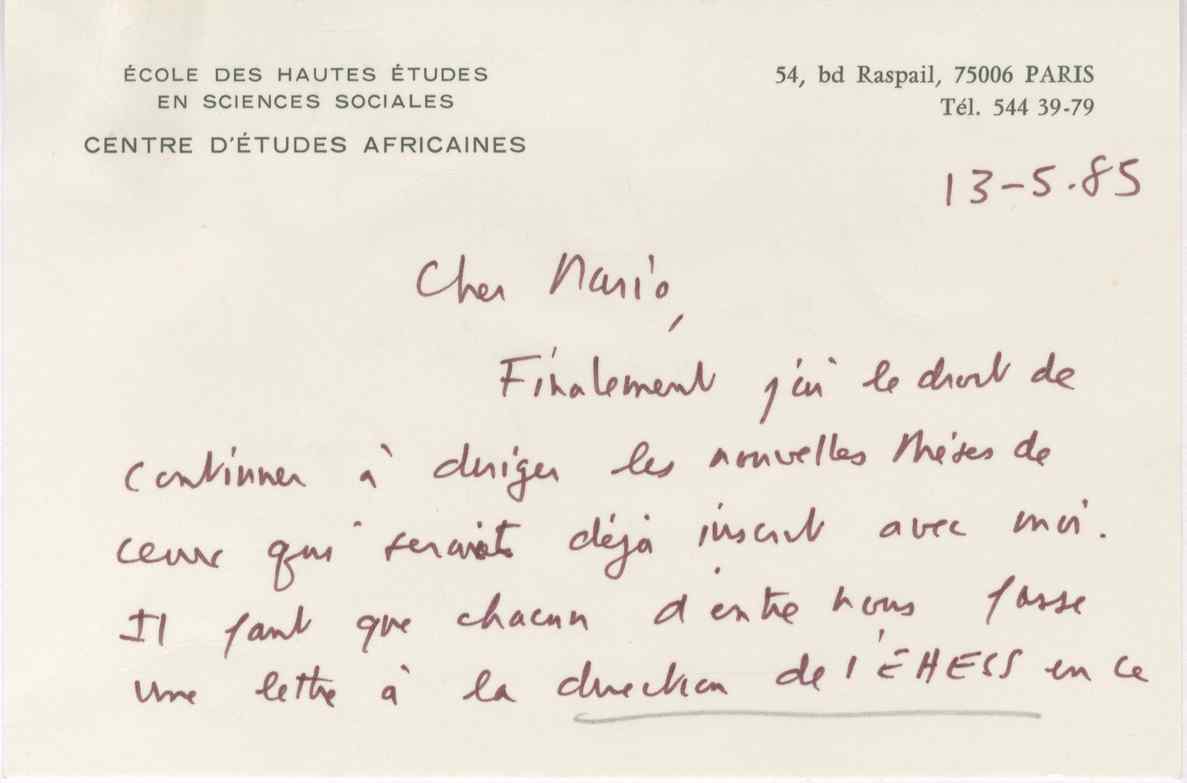 ÉCOLE DES HAUTES ÉTUDES
EN SCIENCES SOCIALES
CENTRE D'ÉTUDES AFRICAINES
54, bd Raspail, 75006 PARIS
Tél. 544 39-79
13-5.85
Cher Mario,
Finalement j'ai le droit de
continuer à diriger les nouvelles thèses de
ceux qui seraient déjà inscrit avec moi.
Il faut que chacun d'entre nous fasse
une lettre à la direction de l'ÉHESS en ce